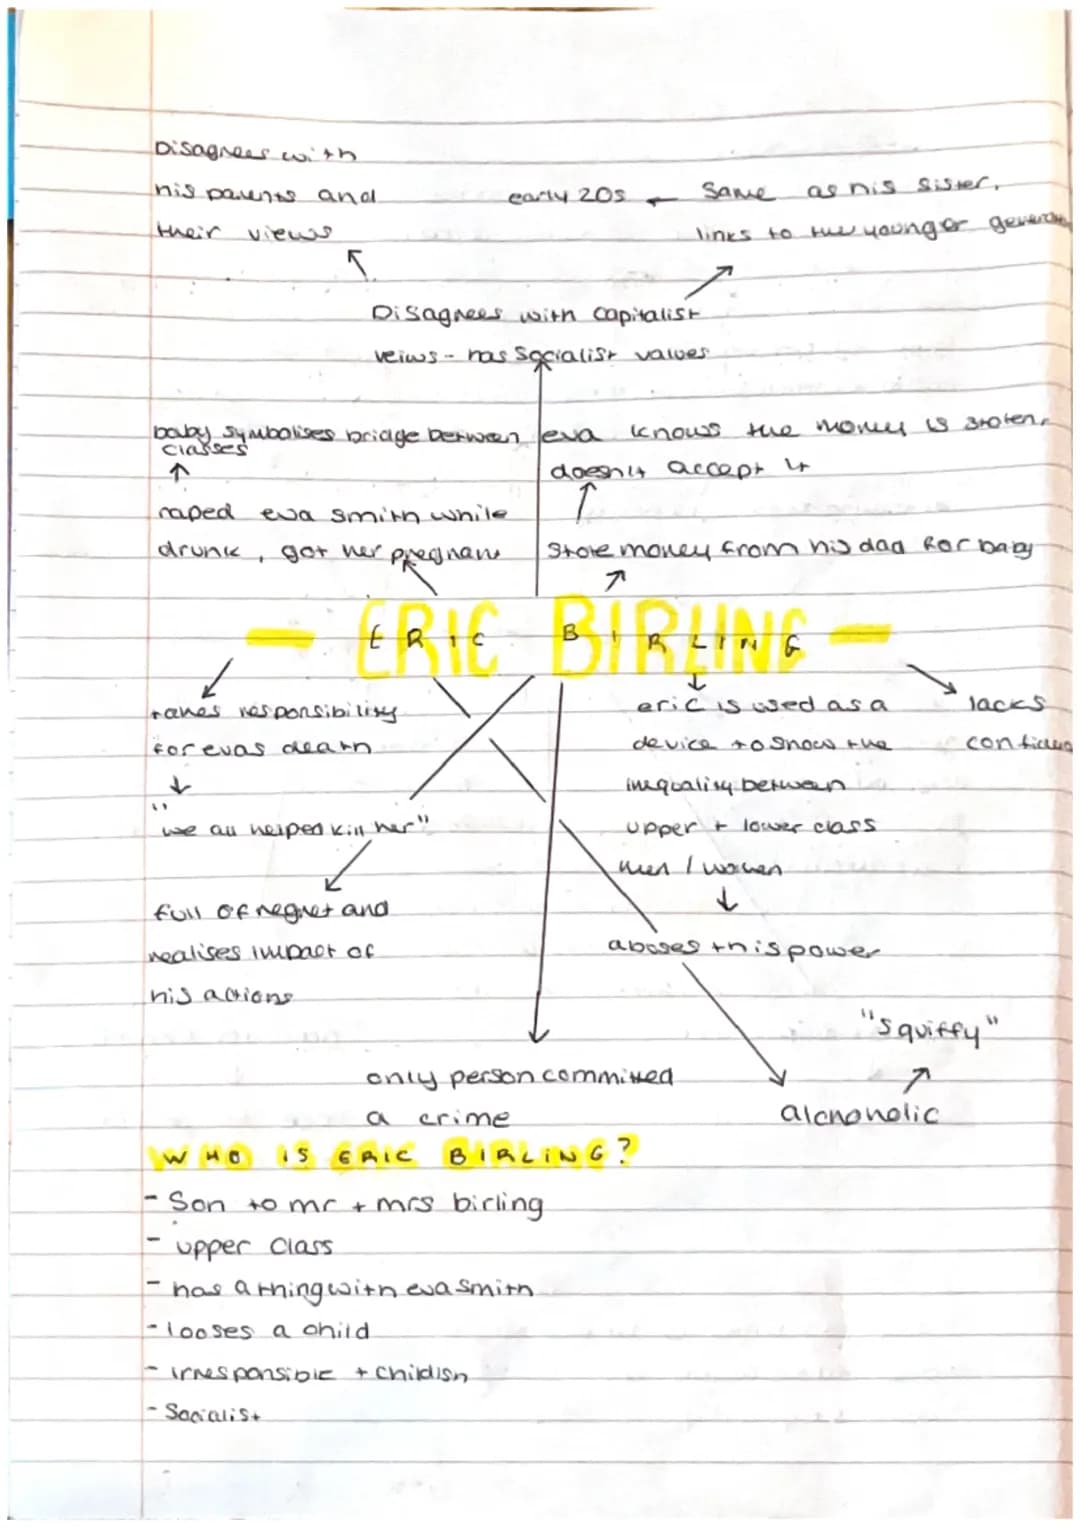 Disagrees with
his parents and
their views
early 20s - Same as his sister,
links to the younger
Disagrees with capitalist
veiws - has socialist values
baby symbolises bridge between
classes
raped eva smith while
drunk, got her pregnant
eva knows the money is stolen,
doesn't accept it
Stole money from his dad for baby
- ERIC BIRLING -
takes responsibility
for evas death
"we all helped kill her"
full of regret and
realises impact of
his actions
eric is used as a
device to show the
inequality between
upper + lower class
men / women
abuses this power
lacks
only person committed
a crime
"squiffy"
alchoholic
WHO IS ERIC BIRLING?
- Son to mr + mrs birling
- upper class
- has a thing with eva smith
- looses a child
- irresponsible + childish
- Socialist